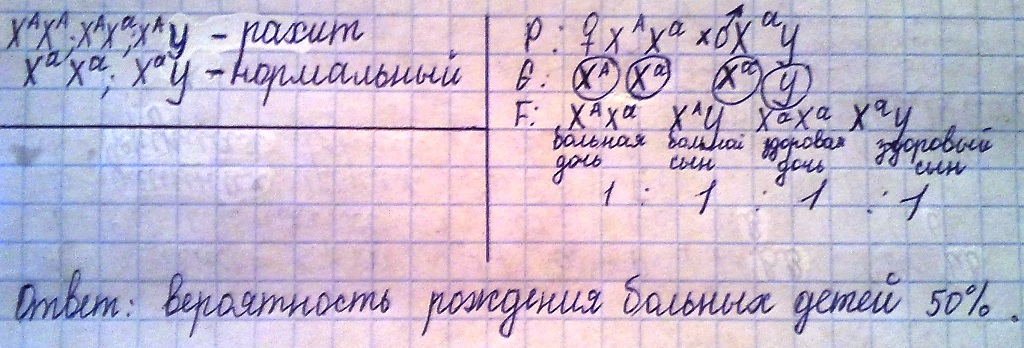 XᴬXᴬ; XᴬXᵃ; Xᴬy – рахит
XᵃXᵃ; Xᵃy – нормальный
P: ♀XᴬXᵃ × ♂Xᵃy
G: Xᴬ Xᵃ Xᵃ y
F: XᴬXᵃ Xᴬy XᵃXᵃ Xᵃy
больная больной здоровая здоровый
дочь сын дочь сын
1 : 1 : 1 : 1
Ответ: вероятность рождения больных детей 50%.